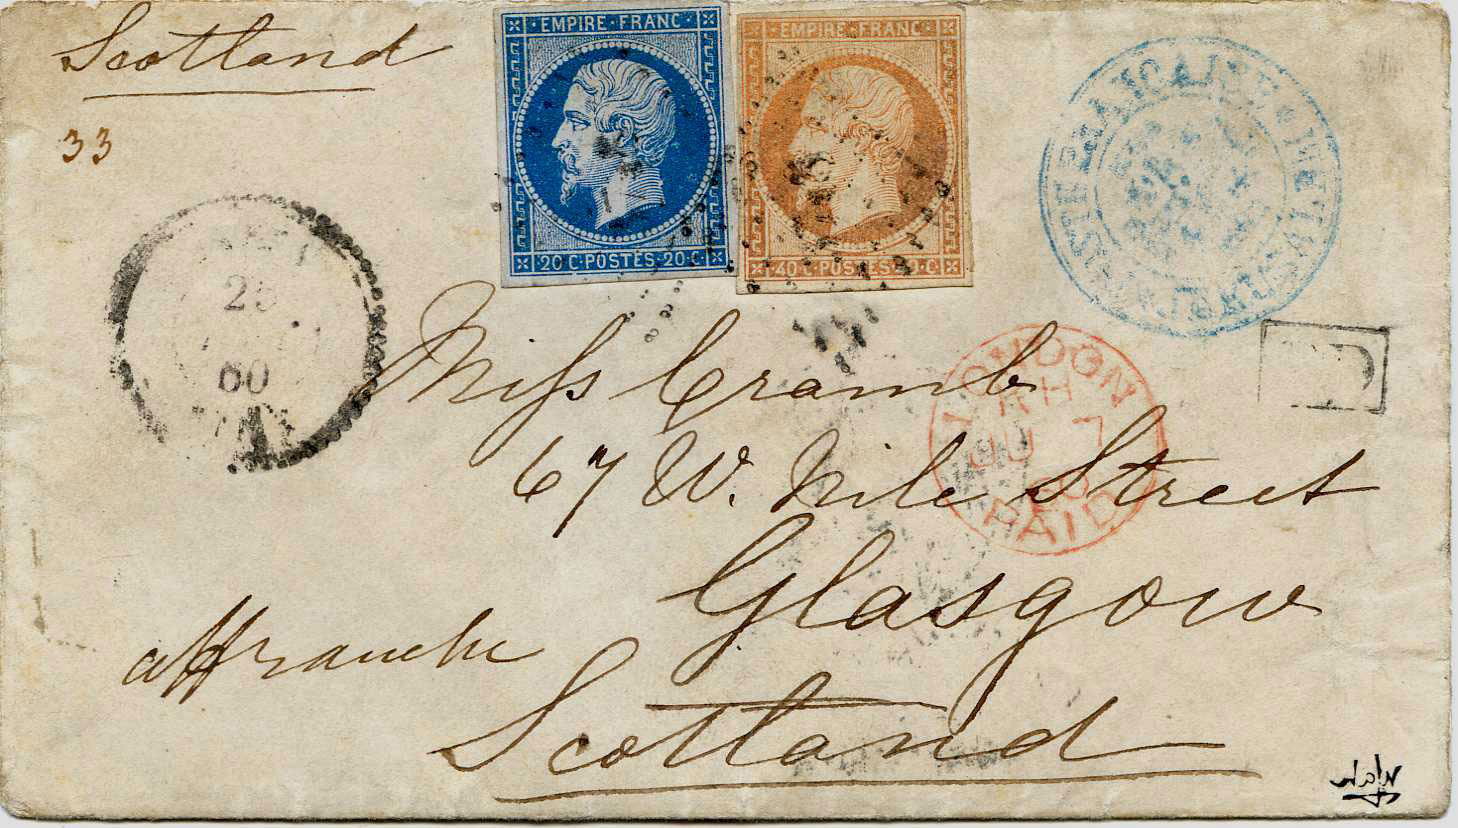 Scotland
33
EMPIRE FRANC
20 C·POSTES·20·C
EMPIRE FRANC
40 C·POSTES·40·C
25
60
LONDON
RH
JU 7
60
PAID
PD
Miss Cramb
67 W. Nile Street
Glasgow
Scotland
affranche